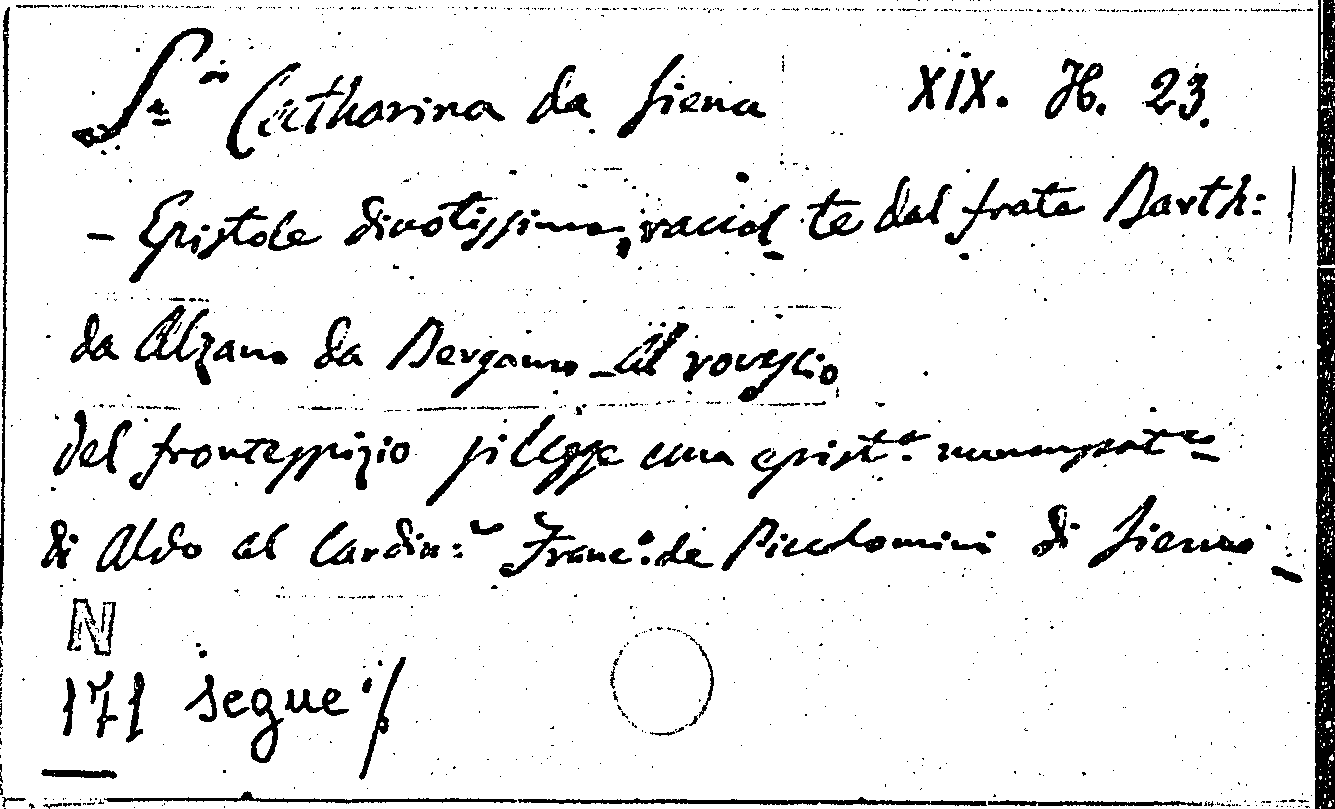 Sta Catharina da Siena XIX. H. 23.
- Epistole divotissime, raccolte dal frate Barth:
da Alzano da Bergamo - Al rovescio
del frontespizio si legge una epist.a
di Aldo al Cardin: Franc.o de Piccolomini di Siena -
N
171 segue ./.